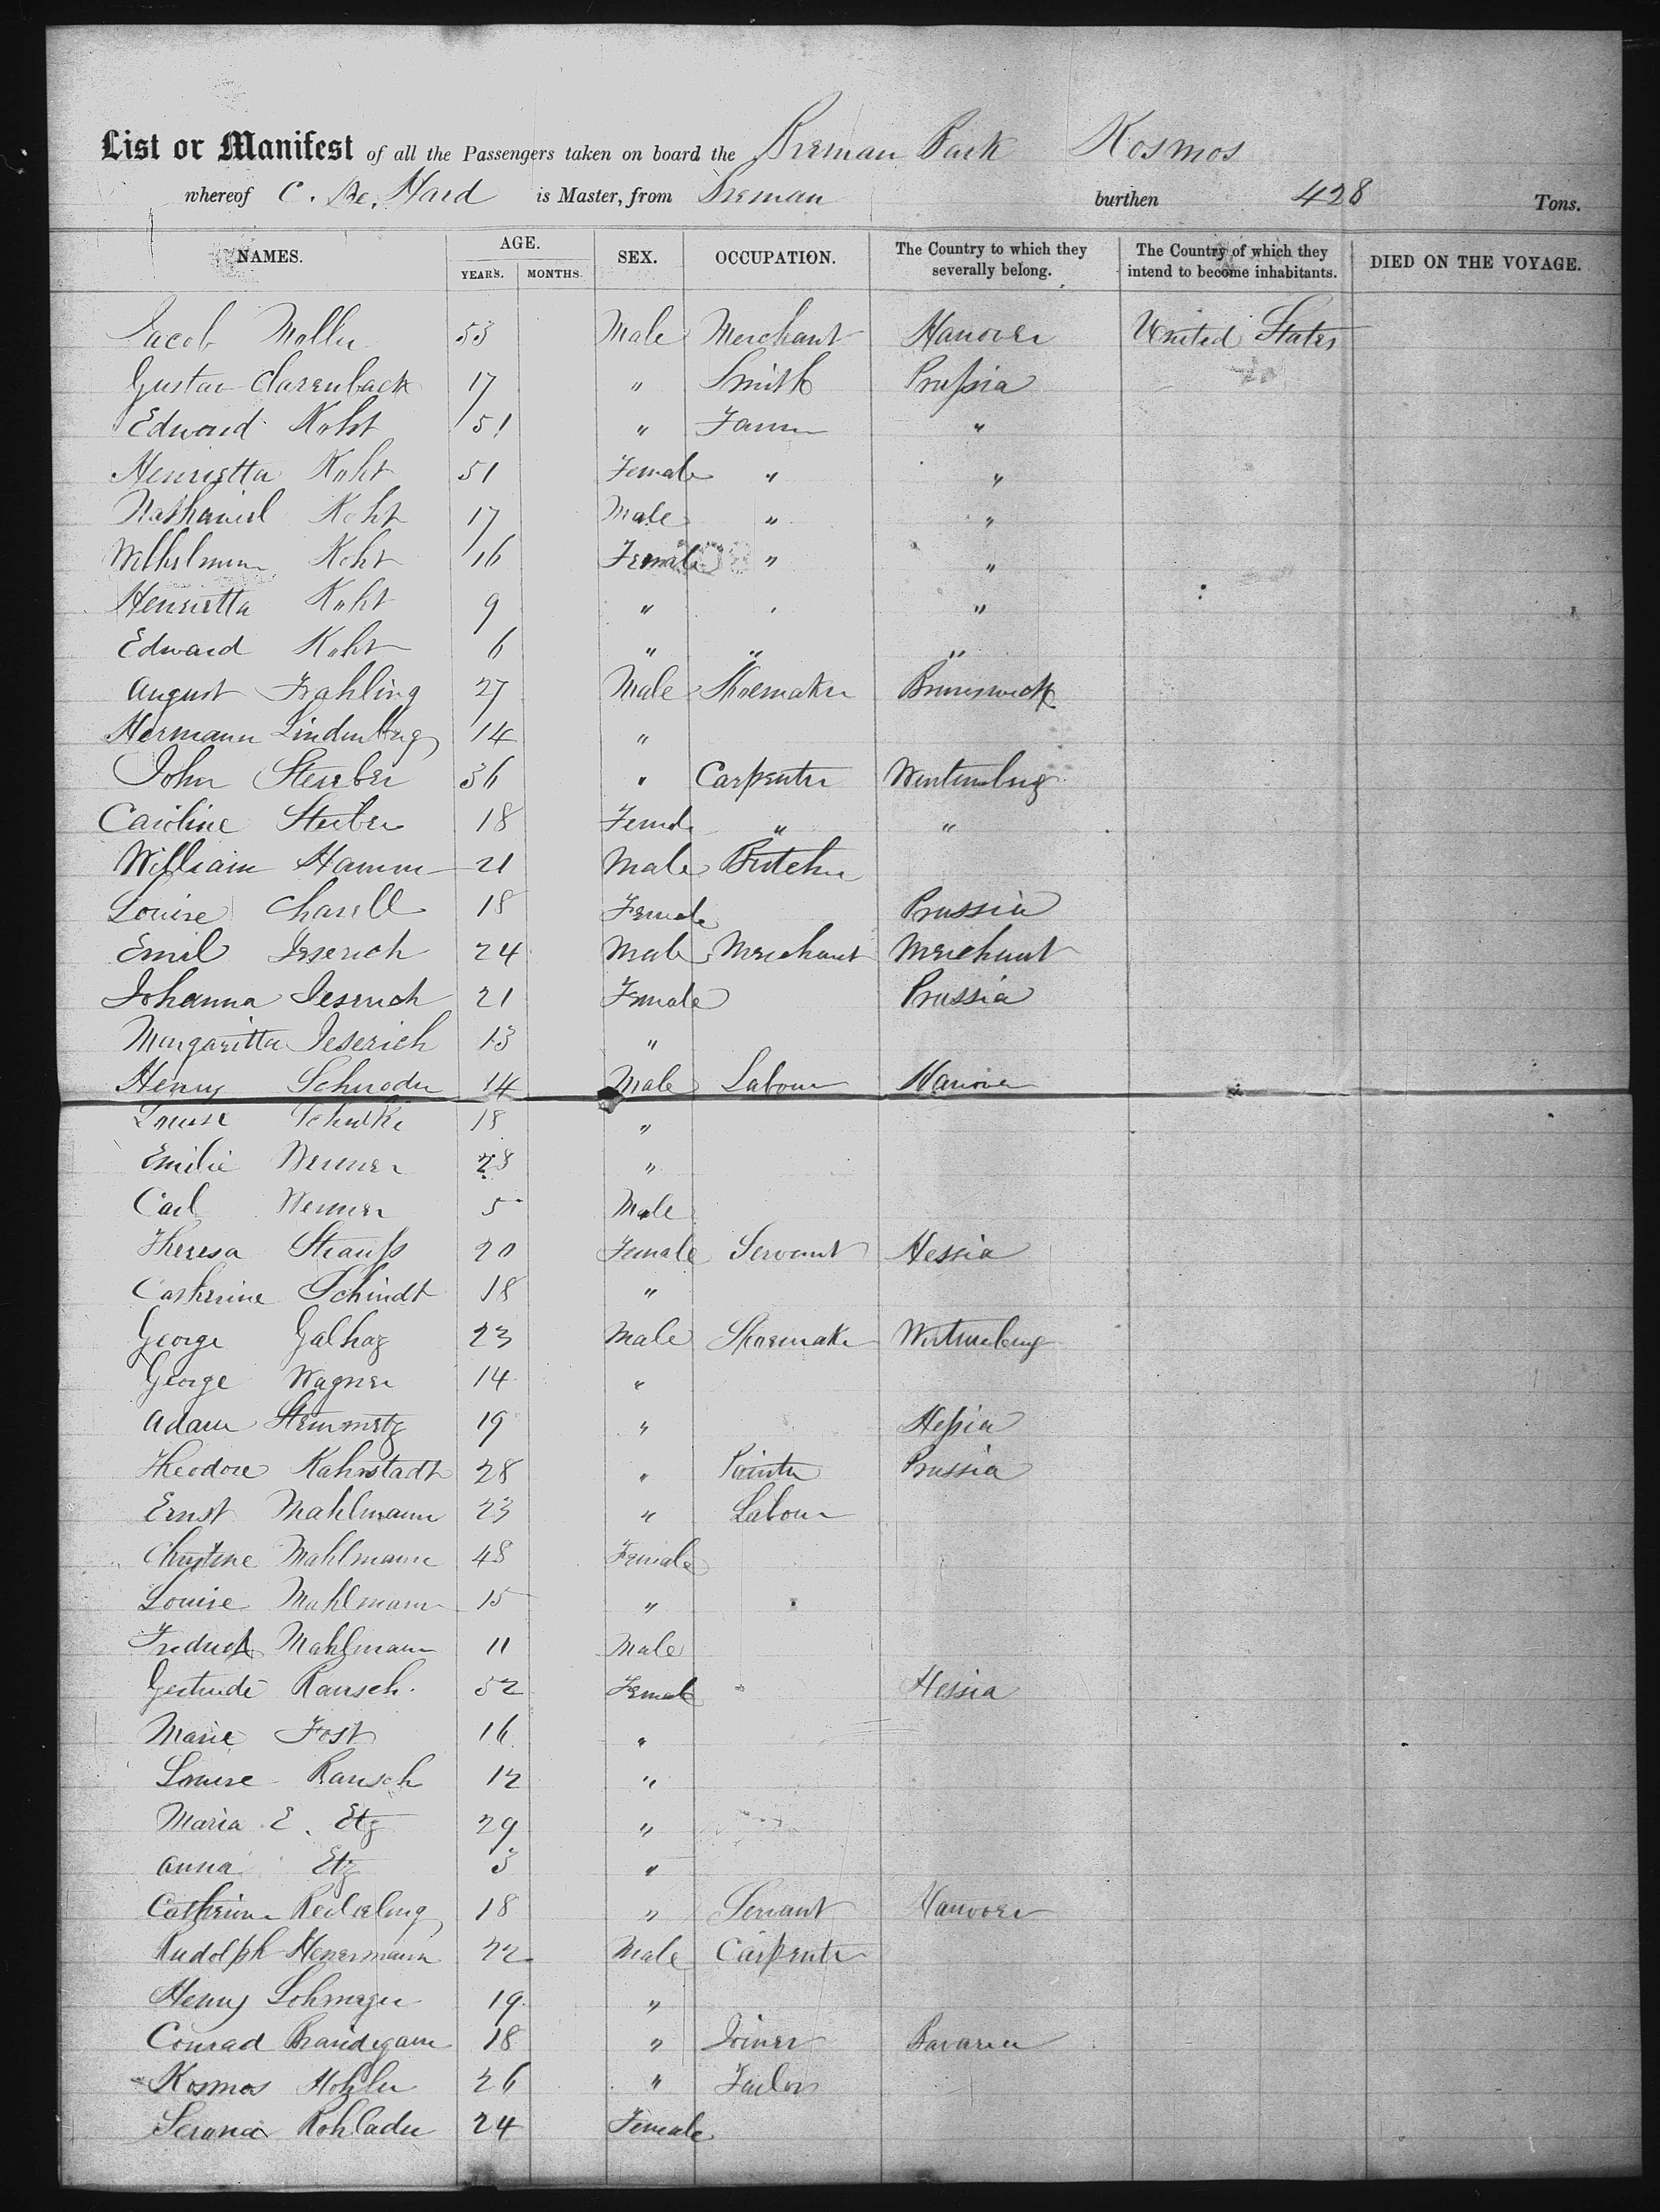 List or Manifest of all the Passengers taken on board the Breman Bark Kosmos
whereof C. De. Hard is Master, from Breman burthen 428 Tons.
NAMES. AGE. YEARS. MONTHS. SEX. OCCUPATION. The Country to which they severally belong. The Country of which they intend to become inhabitants. DIED ON THE VOYAGE.
Jacob Moller 53 Male Merchant Hanover United States
Gustav Clarenback 17 " Smith Prussia
Edward Koht 51 " Farmer "
Henrietta Koht 51 Female " "
Nathaniel Koht 17 Male " "
Wilhelmine Koht 16 Female " "
Henrietta Koht 9 " "
Edward Koht 6 " " "
August Frahling 27 Male Shoemaker Brunswick
Hermann Lindenburg 14 "
John Steuber 36 " Carpenter Wurtemburg
Caroline Steuber 18 Female " "
William Hamm 21 Male Butcher
Louise Charell 18 Female Prussia
Emil Jeserich 24 Male Merchant Merchant
Johanna Jeserich 21 Female Prussia
Margaritta Jeserich 13 "
Henry Schroder 14 Male Labourer Hanover
Louise 18 "
Emilie Werner 28 "
Carl Werner 5 Male
Theresa Strauss 20 Female Servant Hessia
Catherine Schindt 18 "
George Galhaz 23 Male Shoemaker Wurtemburg
George Wagner 14 "
Adam Steinmetz 19 " Hessia
Theodore Kahnstadt 28 " Painter Prussia
Ernst Mahlmann 23 " Labour
Christine Mahlmann 48 Female
Louise Mahlmann 15 "
Fredrick Mahlmann 11 Male
Gertrude Rausch. 52 Female Hessia
Marie Jost 16 "
Louise Rausch 12 "
Maria E. Etz 29 "
Anna Etz 3 "
Catherine 18 " Servant Hanover
Rudolph Henermann 22 Male Carpenter
Henry Lohmeyer 19 "
Conrad Brandegam 18 " Joiner Bavaria
Kosmos Hohler 26 " Tailor
Kohlader 24 Female